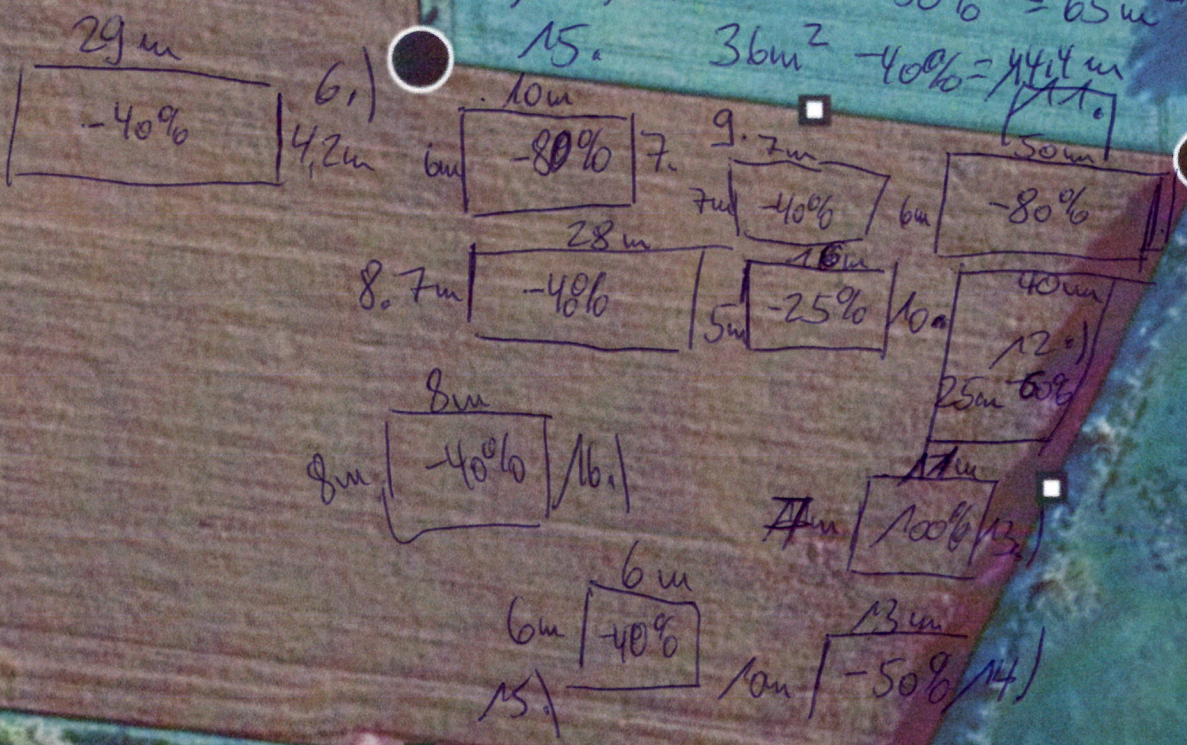 = 65m
15. 36m² -40% = 14,4m
29m
-40%
4,2m
6.)
10m
6m
-80%
7.
9. 7m
7m
-40%
11.
50m
6m
-80%
28m
8. 7m
-40%
16m
5m
-25%
10.
40m
12.)
25m -60%
8m
8m
-40%
16.)
11m
100%
13.)
6m
6m
-40%
15.)
13m
10m
-50%
14)